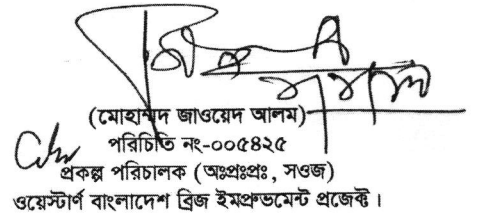 (মোহাম্মদ জাওয়েদ আলম)
পরিচিতি নং-০০৫৪২৫
প্রকল্প পরিচালক (অঃপ্রঃপ্রঃ, সওজ)
ওয়েস্টার্ণ বাংলাদেশ ব্রিজ ইমপ্রুভমেন্ট প্রজেক্ট।